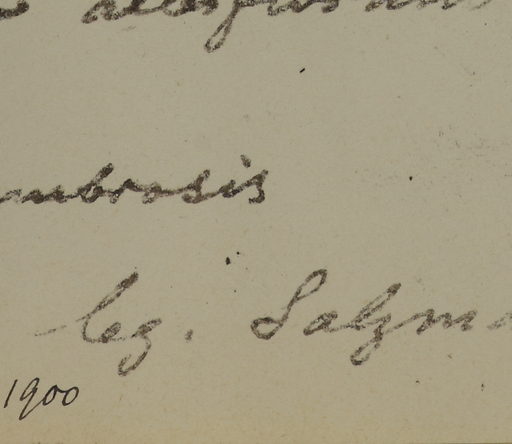 umbrosis
leg. Salzma
1900